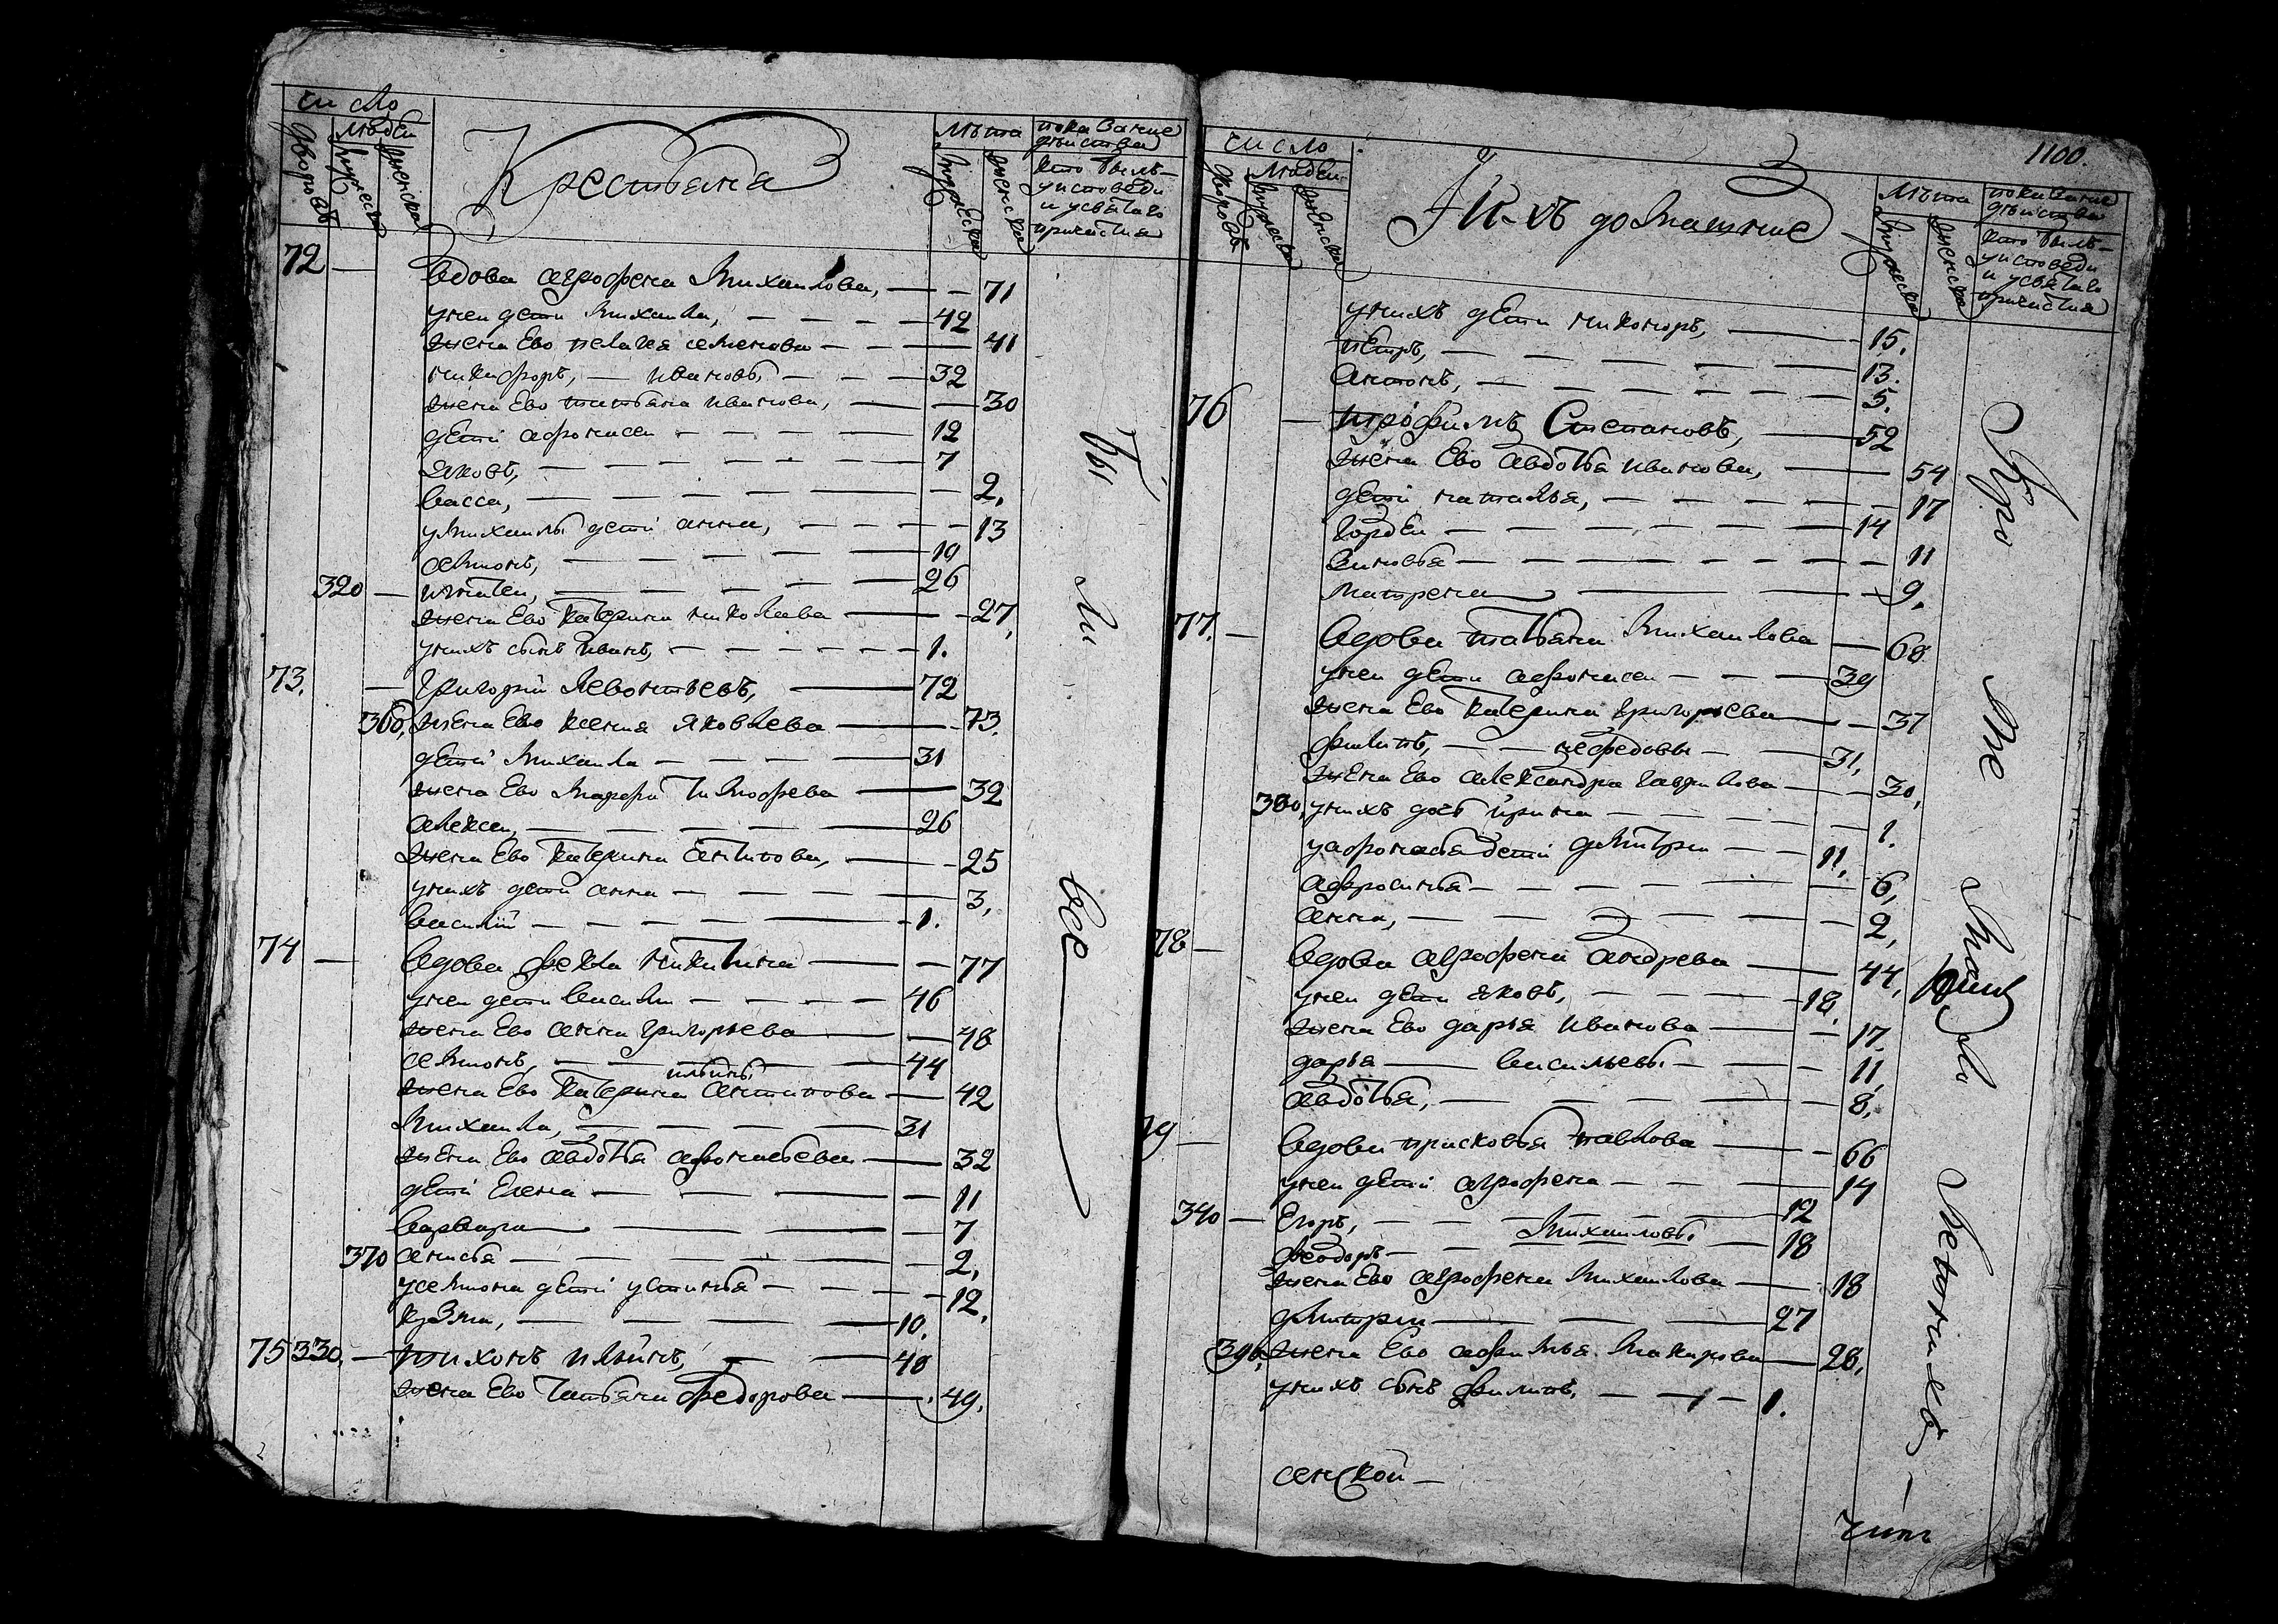 число
дворовъ
людей
мужеска
женска
Крестьяня
лѣта
мужеска
женска
показание
дѣиства
кто былъ
уисповеди
и усвятаго
причастия
72 — вдова агрофена михаилова, — 71
унеи дети михаила, — 42
жена Ево пелагея семенова — 41
никифоръ, — ивановы — 32
жена Ево татьяна иванова, — 30
дети афонасеи — 12
яковъ, — 7
васса, — 2,
умихаилы дети анна, — 13
семионъ, — 10
320 — игнатеи, — 26
жена Ево катерина николаева — 27,
унихъ сынъ иванъ, — 1.
73. — Григорий Левонтьевъ, — 72
360, жена Ево ксения яковлева — 73.
дети михаила — 31
жена Ево марфа тимофеева — 32
алексеи, — 26
жена Ево катерина антипова, — 25
унихъ дети анна — 3,
василий — 1.
74 — вдова фекла никитина — 77
унеи дети василии — 46
жена Ево анна григорьева — 48
семионъ, — ильины — 44
жена Ево катерина антипова — 42
михаила, — 31
жена Ево авдотья афонасьева — 32
дети Елена — 11
варвара — 7
370 анисья — 2,
усемиона дети устинья — 12,
кузма, — 10.
75 330, — тихонъ ильинъ, — 48
жена Ево татьяна федорова — 49.
бы
ли
все
1100.
число
дворовъ
людеи
мужеска
женска
Ихъ домашние
лѣта
мужеска
женска
показание
дѣиства
кто былъ
уисповеди
и усвятаго
причастия
унихъ дети никоноръ, — 15.
петръ, — 13.
антонъ, — 5.
76 — трофимъ Степановъ, — 52
жена Ево авдотья иванова, — 54
дети наталья, — 17
гордеи — 14
зиновья — 11
матрена — 9,
77. — вдова татьяна михаилова — 68
унеи дети афонасеи — 39
жена Ево катерина григорьева — 37
филипъ, — нефедовы — 31,
жена Ево александра гаврилова — 30,
380, унихъ дочь ирина — 1.
уафонасья дети димитреи — 11,
афросинья — 6,
анна, — 2,
78 — вдова агрофена андреева — 44,
унеи дети яковъ, — 18,
жена Ево дарья иванова — 17,
дарья — васильевы — 11,
авдотья, — 8,
79 — вдова прасковья павлова — 66
унеи дети агрофена — 14
340 — Егоръ, — 12
феодоръ — михаиловы — 18
жена Ево агрофена михаилова — 18
димитреи — 27
390, жена Ево афимья макарова — 28,
унихъ сынъ филипъ, — 1.
сенской —